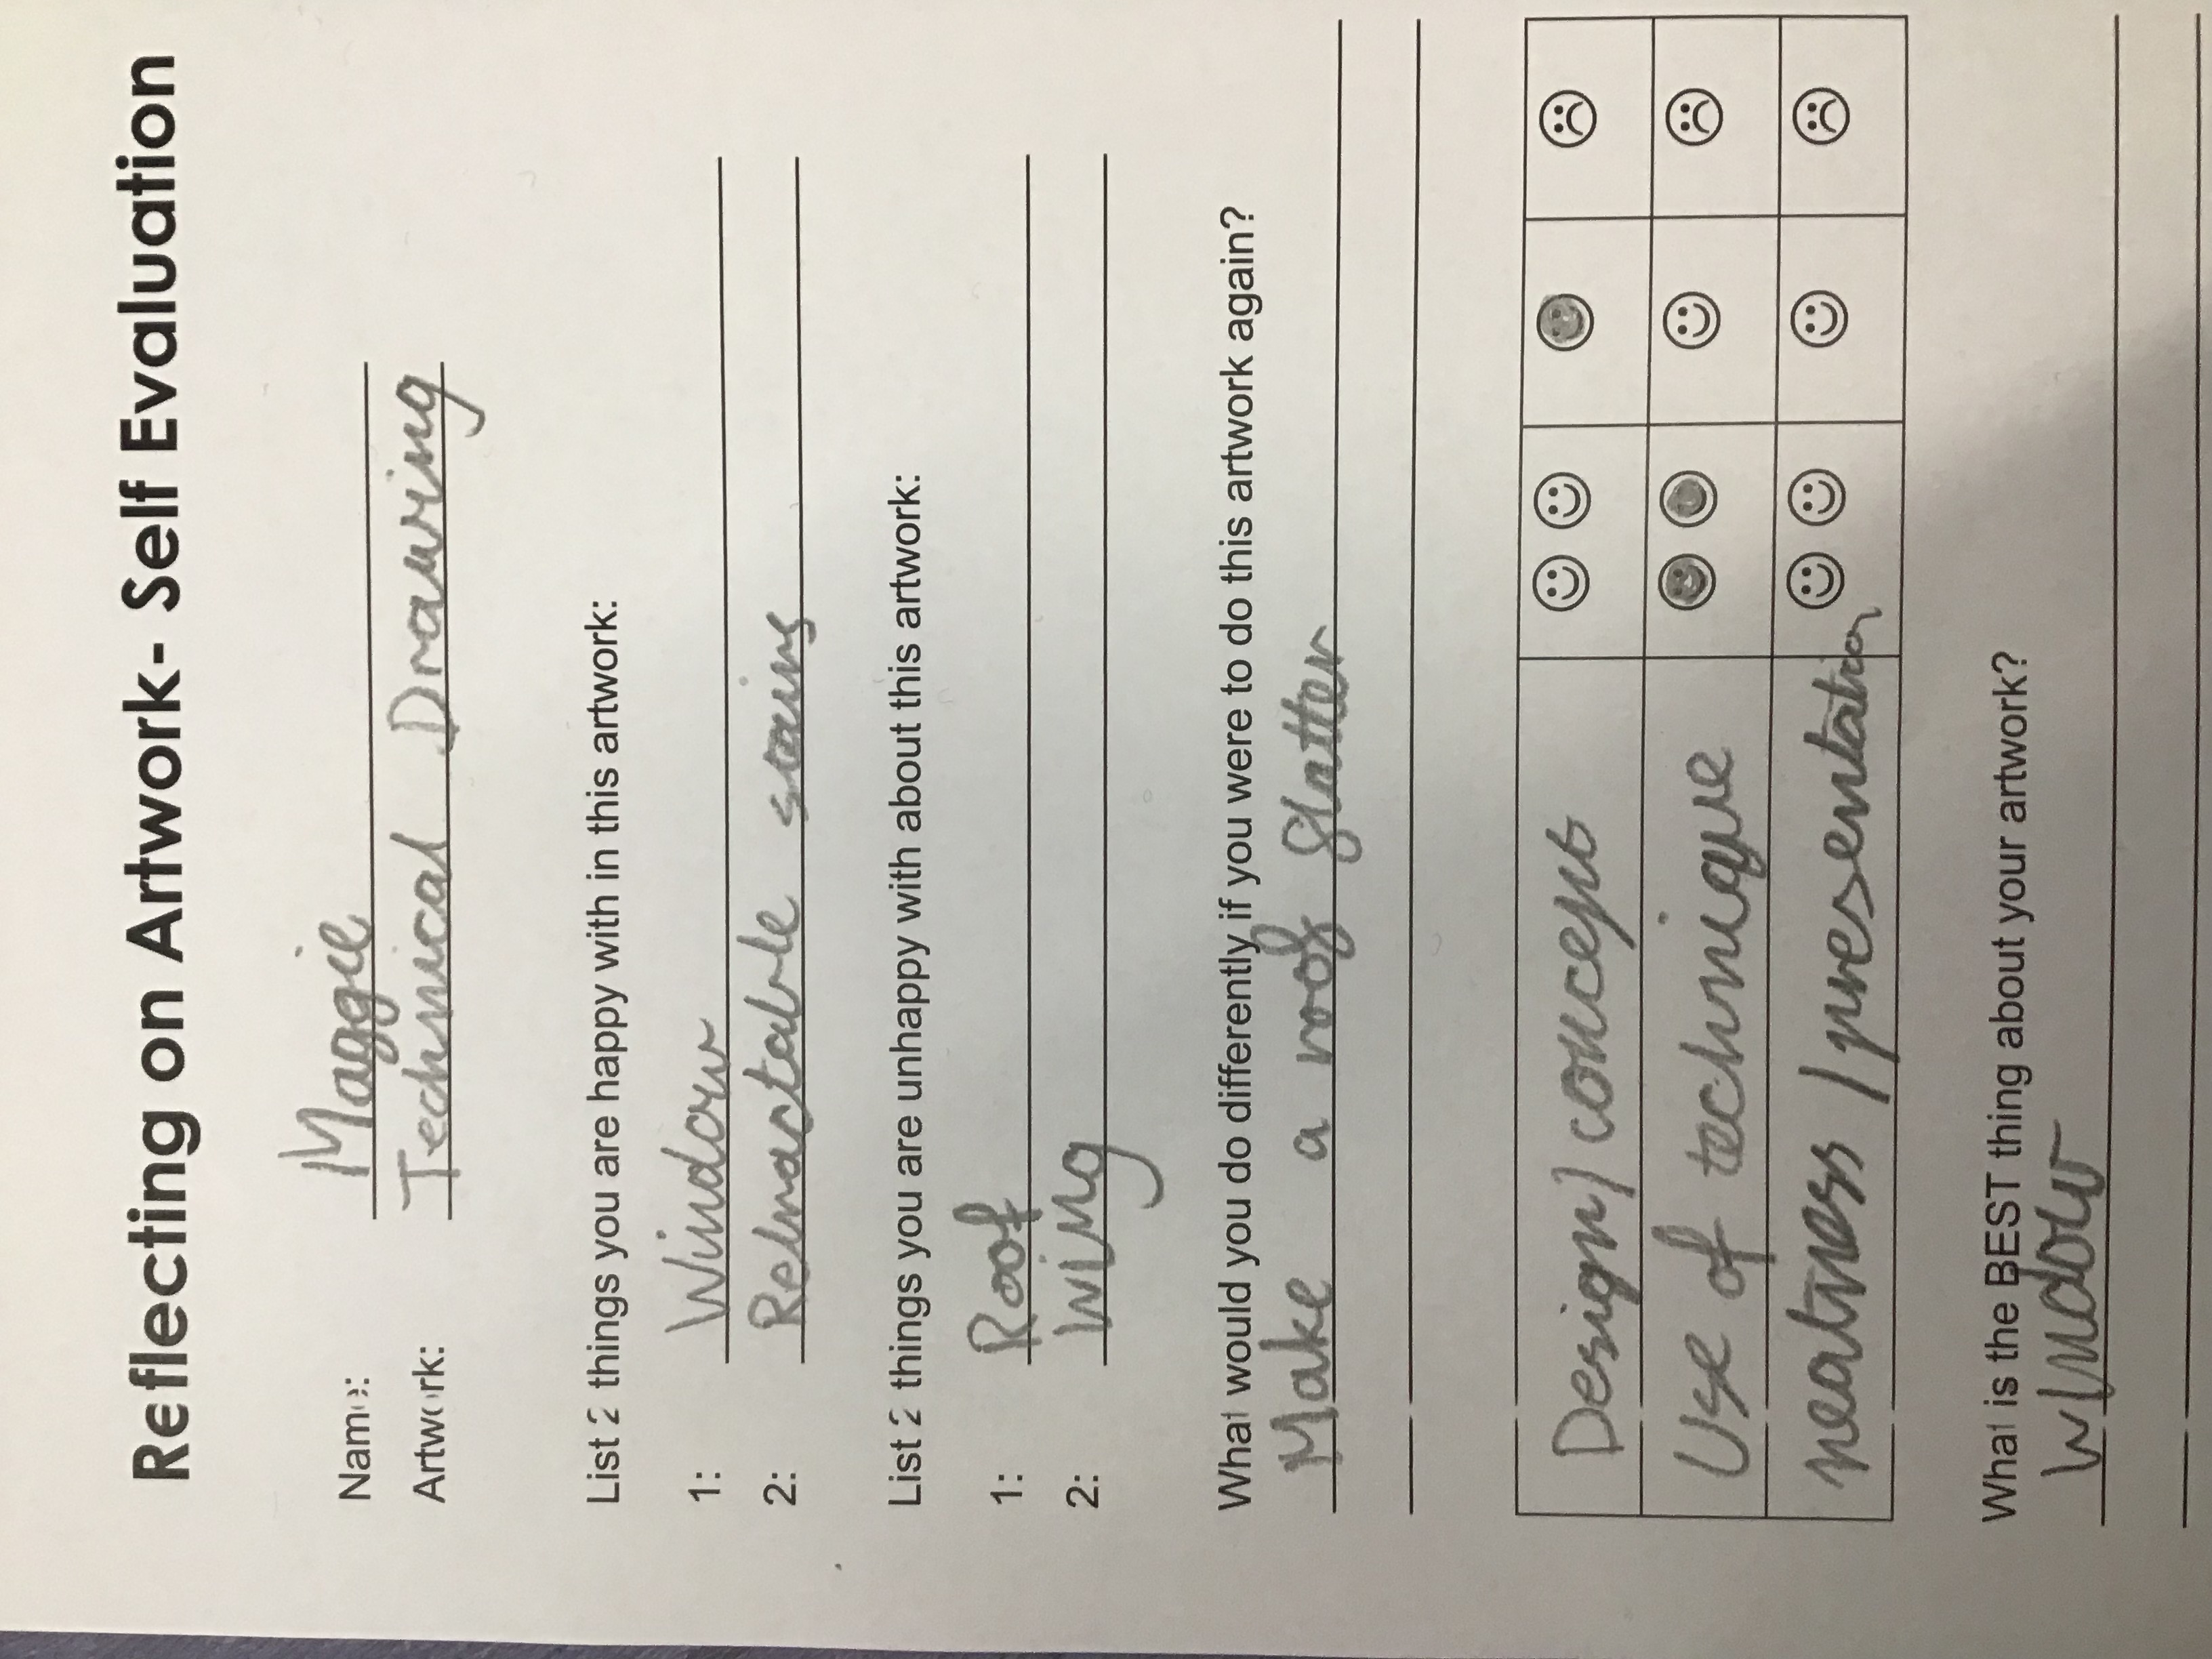 Reflecting on Artwork- Self Evaluation
Name: Maggie
Artwork: Technical Drawing
List 2 things you are happy with in this artwork:
1: Window
2: Retractable stairs
List 2 things you are unhappy with about this artwork:
1: Roof
2: Wing
What would you do differently if you were to do this artwork again?
Make a roof flatter
Design/concept
Use of technique
neatness/presentation
What is the BEST thing about your artwork?
Window